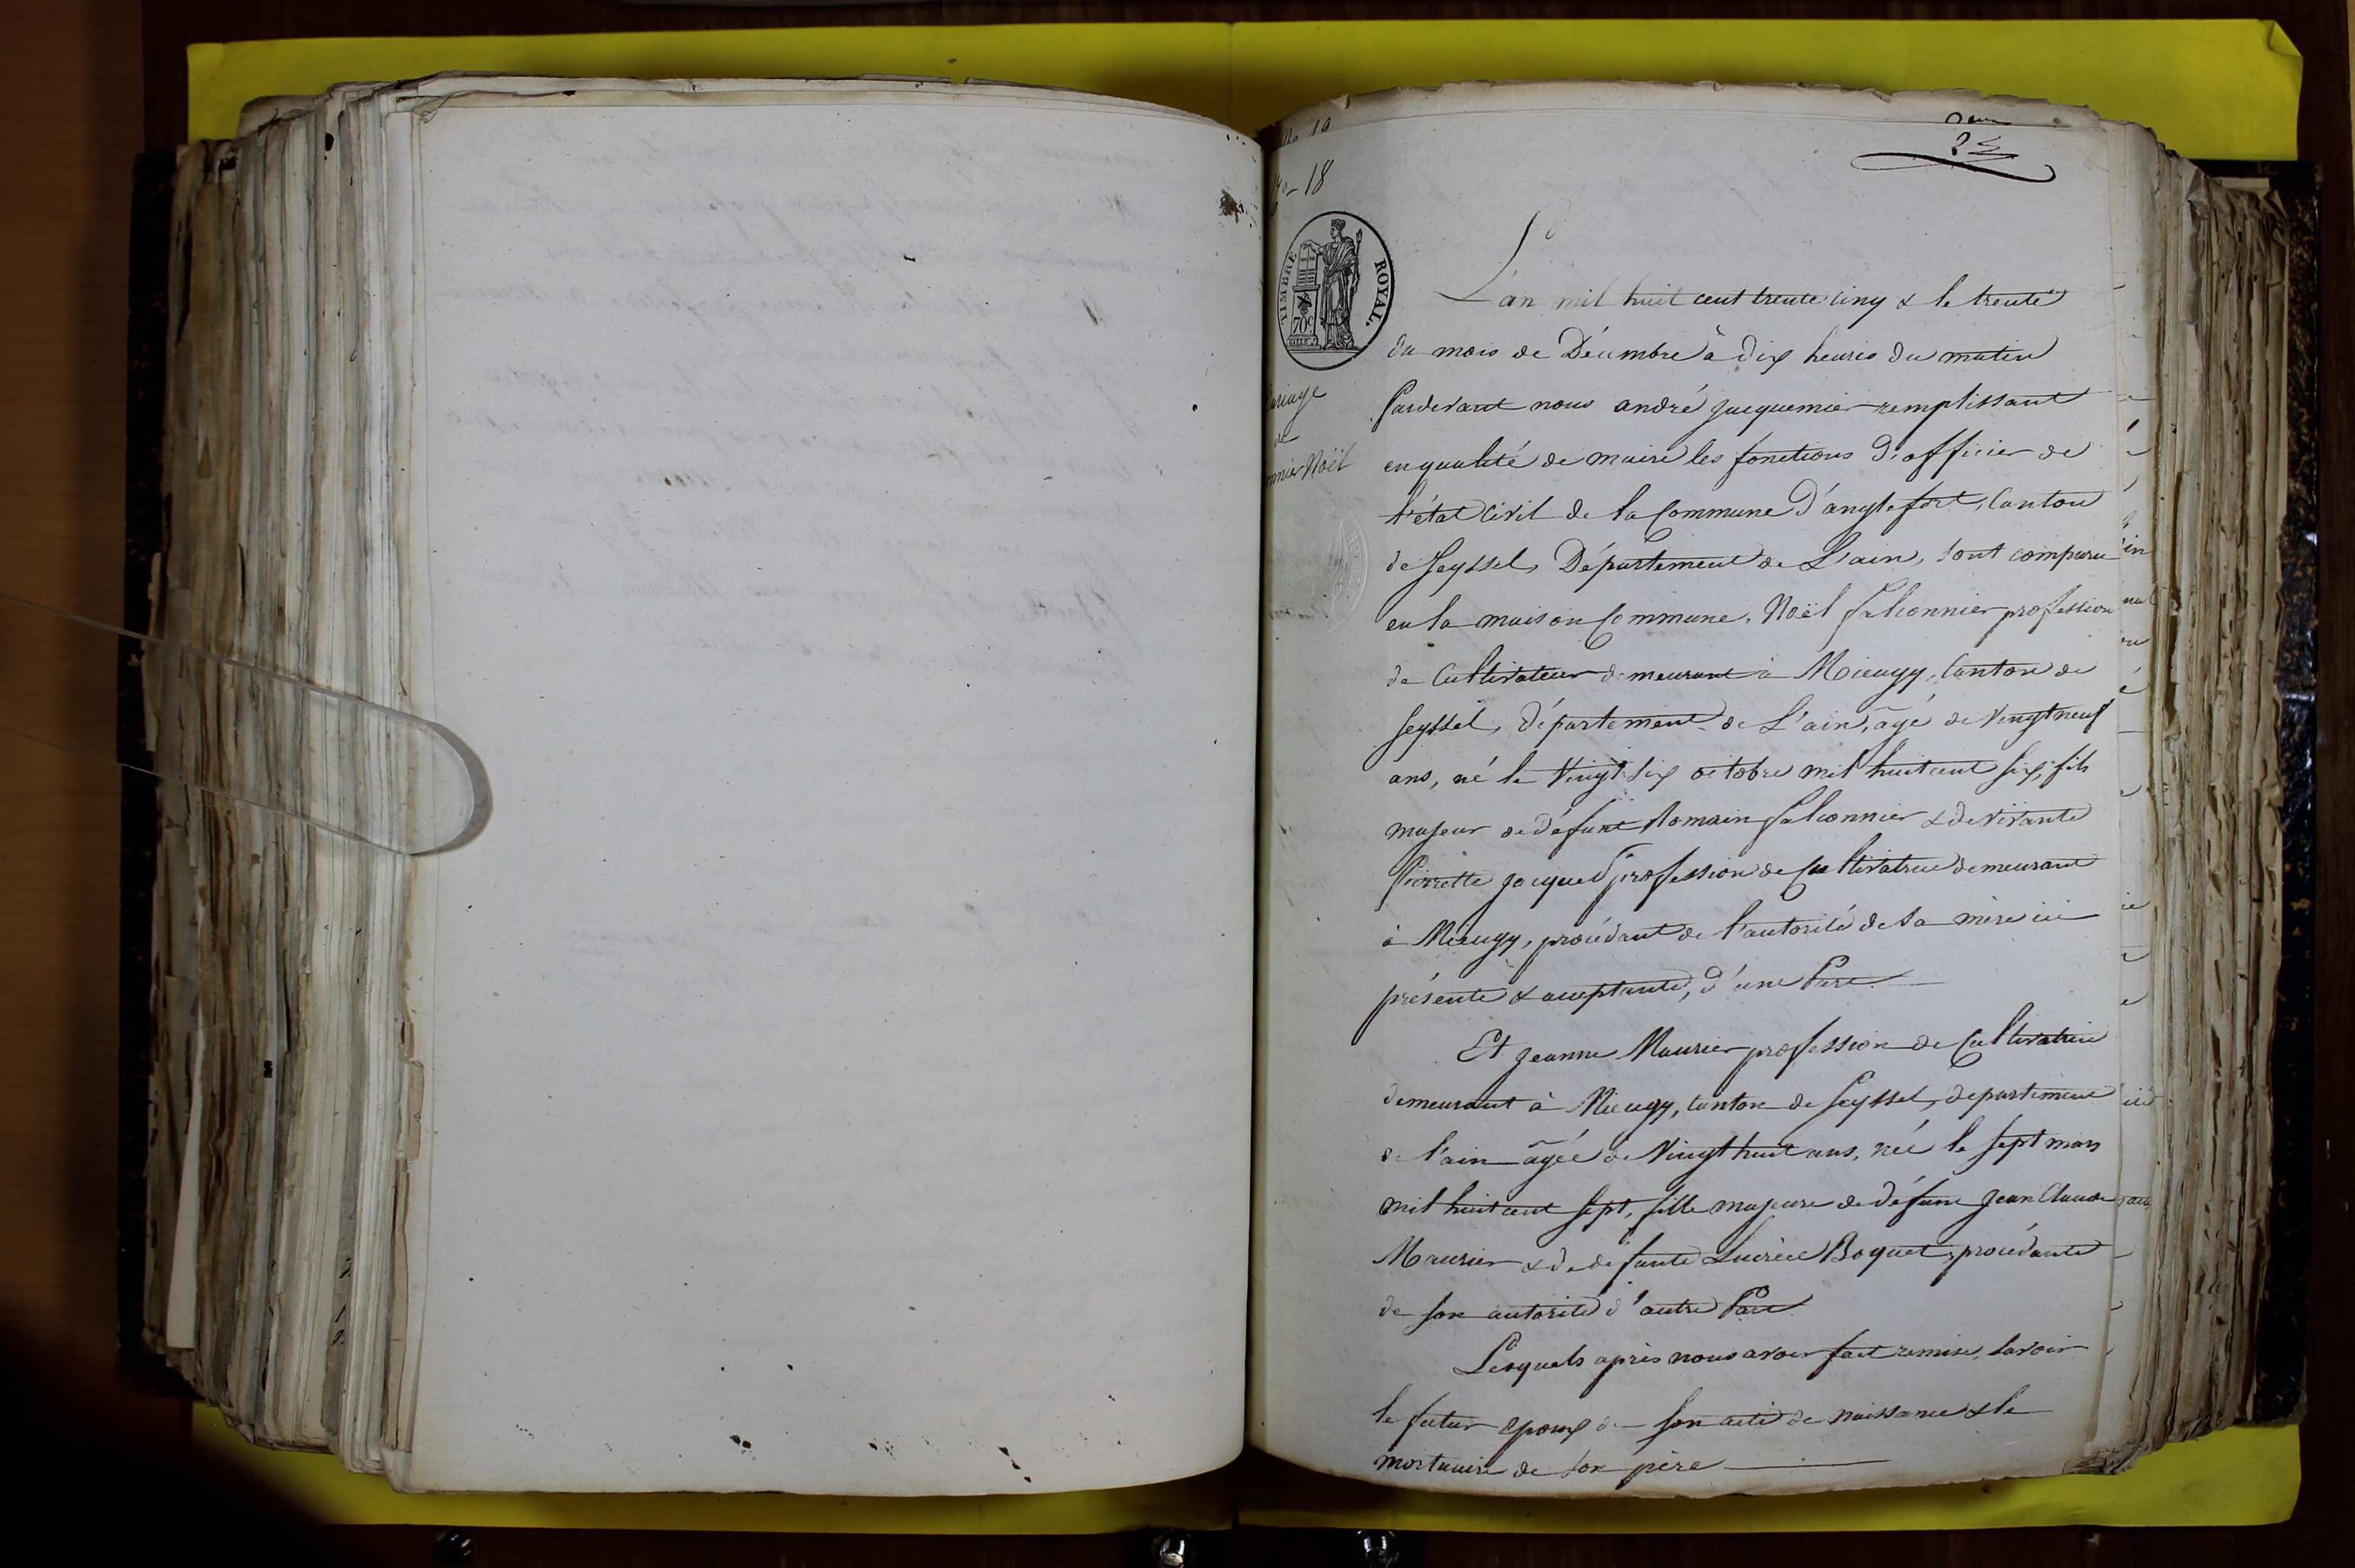 No 19
No - 18
TIMBRE ROYAL.
70c
Mariage
de
nnier Noël
L'an mil huit cent trente cinq & le trente
du mois de Décembre à dix heures du matin
Pardevant nous andré Jacquemier remplissant
en qualité de maire les fonctions d'officier de
l'état Civil de la Commune d'anglefort, Canton
de Seyssel, Département de L'ain, sont comparu
en la maison Commune, Noël falconnier profession
de Cultivateur demeurant à Mieugy, Canton de
Seyssel, département de L'ain, âgé de Vingt neuf
ans, né le Vingt six octobre mil huit cent six, fils
majeur de défunt Romain falconnier & de vivante
Pierrette Jacquet profession de Cultivatrice demeurant
à Mieugy, procédant de l'autorité de sa mère ici
présente & acceptante, d'une Part
Et Jeanne Maurier profession de Cultivatrice
demeurant à Mieugy, Canton de Seyssel, département
de l'ain âgée de Vingt huit ans, née le sept mars
mil huit cent sept, fille majeure de défunt Jean Claude
Maurier & de défunte Lucrèce Boquet, procédante
de son autorité d'autre Part
Lesquels après nous avoir fait remise, savoir
le futur epoux de son acte de naissance & le
mortuaire de son père